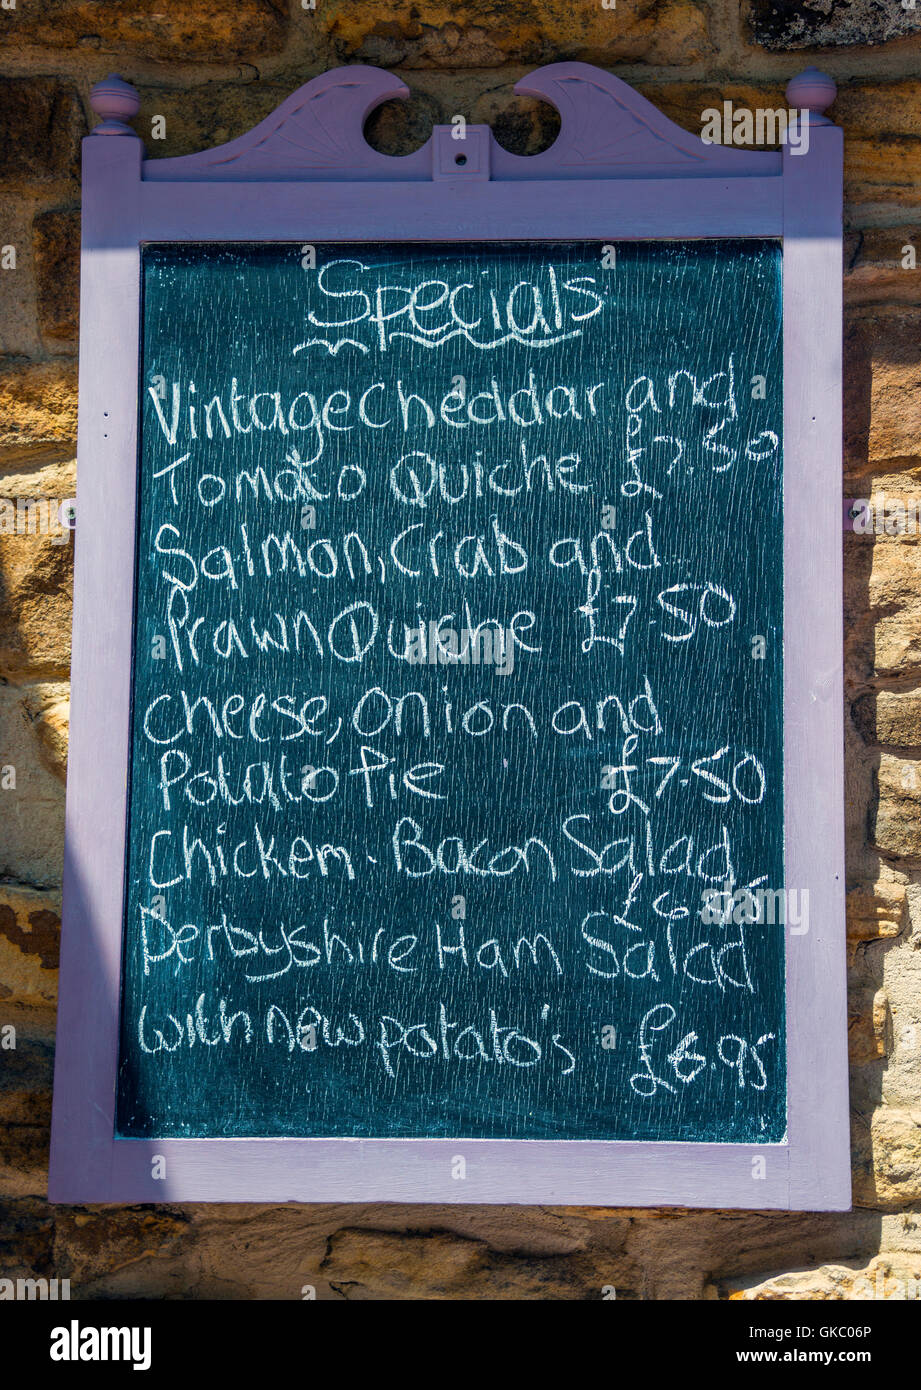 Specials
Vintage Cheddar and
Tomato Quiche £7.50
Salmon, Crab and
Prawn Quiche £7.50
Cheese, Onion and
Potato Pie £7.50
Chicken . Bacon Salad
£6.95
Derbyshire Ham Salad
with new potato's £6.95
alamy
Image ID: GKC06P
www.alamy.com